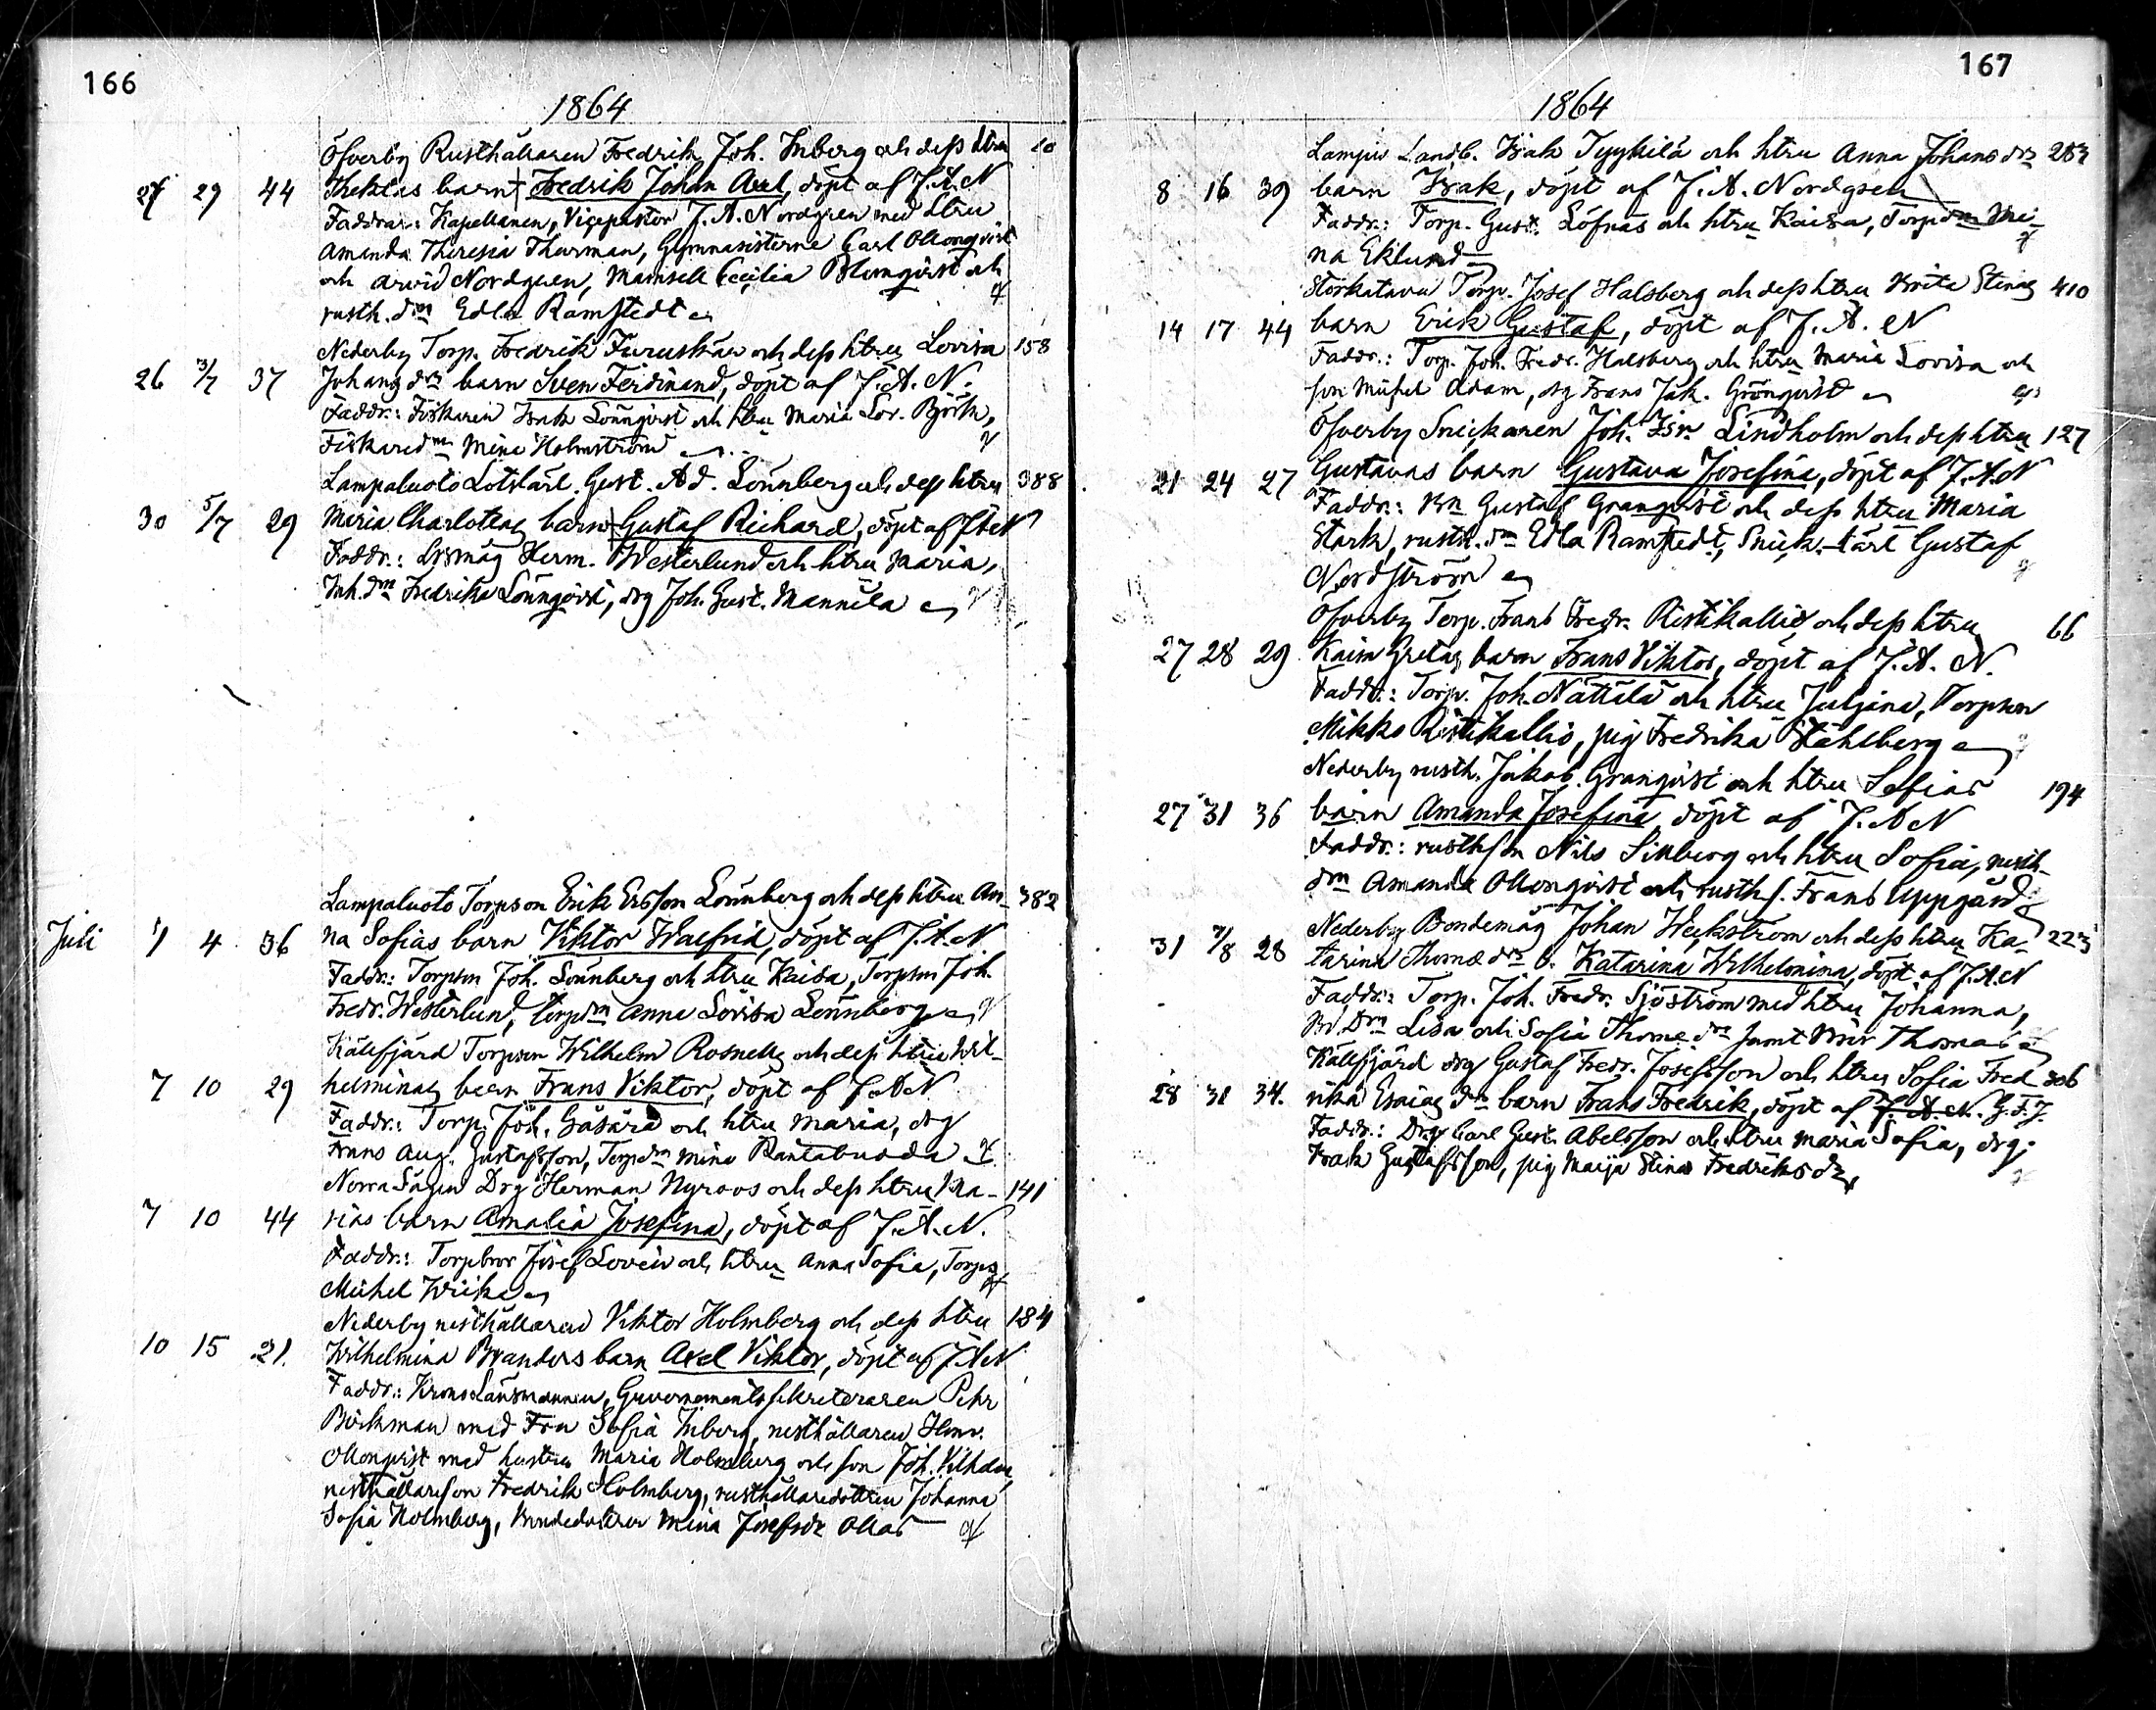 166
1864
Öfverby Rusthållaren Fredrik Joh. Inberg och dess htru 20
27 29 44 Theklas barn Fredrik Johan Axel, döpt af J.A.N
Faddrar: Kapellanen, Vicepastor J. A. Nordgren med htru
Amanda Theresia Thurman, Gymnasisterne Carl Ollonqvist
och Arvid Nordgren, Mamsell Cecilia Blomqvist och
rusth. dn Edla Ramstedt
Nederby Torp. Fredrik Furuskär och dess htru Lovisa 158
26 3/7 37 Johans dr barn Sven Ferdinand, döpt af J. A. N.
Faddr.: Fiskaren Isak Lönnqvist och htru Maria Lov. Björk,
Fiskaredn Mina Holmström
Lampaluoto Lotskarl. Gust. Ad. Lönnberg och dess htru 388
30 5/7 29 Maria Charlottas barn Gustaf Richard, döpt af J.A.N
Faddr.: Herm. Westerlund och htru Maria,
Inh. dn Fredrika Lönnqvist, drg Joh. Gust. Mannila
Lampaluoto Torpson Erik Ersson Lönnberg och dess htru An- 382
Juli 1 4 36 na Sofias barn Viktor Walfrid, döpt af J.A.N
Faddr.: Torpson Joh. Lönnberg och htru Kaisa, Torpson Joh.
Fredr. Westerlund, torpdn Anna Lovisa Lönnberg
Källfjärd Torpson Wilhelm Rosnell och dess htru Wil-
7 10 29 helminas barn Frans Viktor, döpt af J.A.N
Faddr.: Torp. Joh. Gåsärd och htru Maria, drg
Frans Aug. Gustafsson, Torpdn Mina Rantabuoda
Norra Sågen Drg Herman Nyroos och dess htru Ma- 141
7 10 44 rias barn Amalia Josefina, döpt af J.A.N.
Faddr.: Torpbror Josef Lovein och htru Anna Sofia, Torps
Mickel
Nederby rusthållaren Viktor Holmberg och dess htru 184
10 15 21. Wilhelmina Branders barn Axel Viktor, döpt af J.A.N
Faddr.: Kronolänsmannen, Guvernementssekreteraren Pehr
Böckman med Fru Sofia Inberg, rusthållaren Henr.
Ollonqvist med hustru Maria Holmberg och son Joh. Vilhelm,
rusthållareson Fredrik Holmberg, rusthållaredottren Johanna
Sofia Holmberg, Bondedottren Mina Josefsdr Ollas
167
1864
Lampis Landb. Isak Tyykilä och htru Anna Johans dr 283
8 16 39 barn Isak, döpt af J. A. Nordgren
Faddr.: Torp. Gust. Löfnäs och htru Kaisa, Torpdn Mi-
na Eklund
Storkatava Torp. Josef Halsberg och dess htru Brita Stinas 410
14 17 44 barn Erick Gustaf, döpt af J. A. N
Faddr.: Torp. Joh. Fredr. Halsberg och htru Maria Lovisa och
son Mickel Adam, drg Frans Jak. Grönqvist
Öfverby Snickaren Joh. Isr. Lindholm och dess htru 127
21 24 27 Gustavas barn Gustava Josefina, döpt af J.A.N
Faddr.: Bn Gustaf Granqvist och dess htru Maria
Stark, rusth. dn Edla Ramstedt, Snick. karl Gustaf
Nordström
Öfverby Torp. Frans Fredr. Ristikallio och dess htru 66
27 28 29 Kaisa Gretas barn Frans Viktor, döpt af J. A. N.
Faddr.: Torp. Joh. Nättilä och htru Juljana, Torpson
Mikko Ristikallio, pig Fredrika Ståhlberg
Nederby rusth. Jakob Granqvist och htru Sofias 194
27 31 36 barn Amanda Josefina, döpt af J.A.N
Faddr.: rusthson Nils Sillberg och htru Sofia, rusth-
dn Amanda Ollonqvist och rusth s. Frans Uppgård
Nederby Bondemåg Johan Weckström och dess htru Ka- 223
31 7/8 28 tarina Thomæ dr b. Katarina Wilhelmina, döpt af J.A.N
Faddr.: Torp. Joh. Fredr. Sjöström med htru Johanna,
Bd. Drn Lisa och Sofia Thome dr samt Bror Thomas
Källfjärd drg Gustaf Fredr. Josefsson och htru Sofia Fred 306
28 31 34. rika Esaias dr barn Frans Fredrik, döpt af J. A. N. G.F.J.
Faddr.: Drg Carl Gust. Abelsson och htru Maria Sofia, drg
Isak Gustafsson, pig Maija Stina Fredriksdr